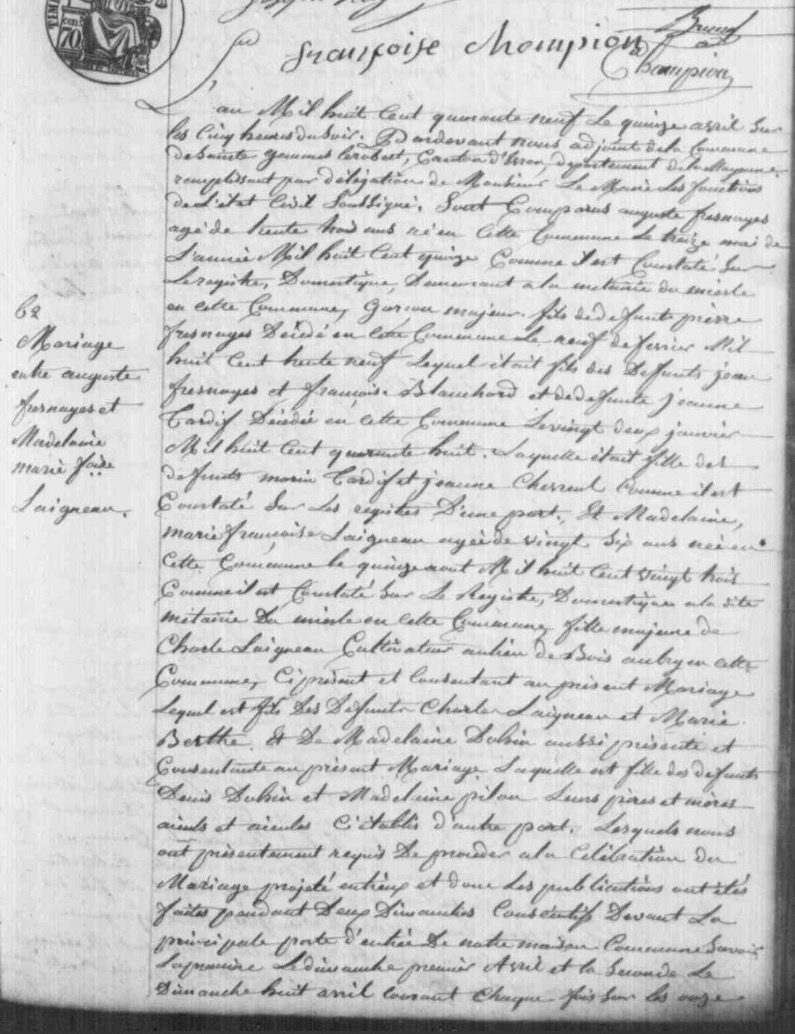 françoise Champion
Champion
L'an Mil huit Cent quarante neuf Le quinze avril Sur
les Cinq heures du Soir. Pardevant nous adjoint de la Commune
de Sainte gemmes Lerobert, Canton d'Evron, departement de la Mayenne.
remplissant par délégation de Monsieur Le Maire Les fonctions
de L'état Civil Soussigné. Sont Comparus auguste fresnayes
agé de trente trois ans né en Cette Commune Le treize mai de
L'année Mil huit Cent quinze Comme il est Constaté Sur
Le registre, Domestique, Demeurant a la metairie du
en cette Commune, garcon majeur. fils de defunt pierre
fresnayes Décédé en Cette Commune Le neuf de fevrier Mil
huit Cent trente neuf Lequel était fils des Defunts jean
fresnayes et francoise Blanchard et de defunte jeanne
Tardif Décédée en cette Commune Le vingt deux janvier
Mil huit Cent quarante huit. Laquelle était fille des
defunts marin Tardif et jeanne Cherreul Comme il est
Constaté Sur Les registres D'une part., Et Madelaine,
marie francoise Laigneau agée de vingt Six ans née en
Cette Commune le quinze aout Mil huit Cent vingt trois
Comme il est Constaté Sur Le Registre, Domestique a la dite
métairie Du en cette Commune, fille majeure de
Charle Laigneau Cultivateur au lieu de Bois aubry en cette
Commune, Ci présent et Consentant au présent Mariage
Lequel est fils Des Defunts Charles Laigneau et Marie
Berthe. Et De Madelaine Dubin aussi présente et
Consentante au présent Mariage Laquelle est fille des defunts
Denis Dubin et Madelaine pilon Leurs pères et mères
aieuls et aieules Ci établis d'autre part. Lesquels nous
ont présentement requis De proceder a la Célébration du
Mariage projeté entreux et dont Les publications ont étés
faites pendant Deux Dimanches Consécutifs Devant La
principale porte d'entrée De notre maison Commune Savoir
La première Le dimanche premier Avril et la Seconde Le
Dimanche huit avril courant Chaque fois Sur les onze
62
Mariage
entre auguste
fresnayes et
Madelaine
marie foise
Laigneau.